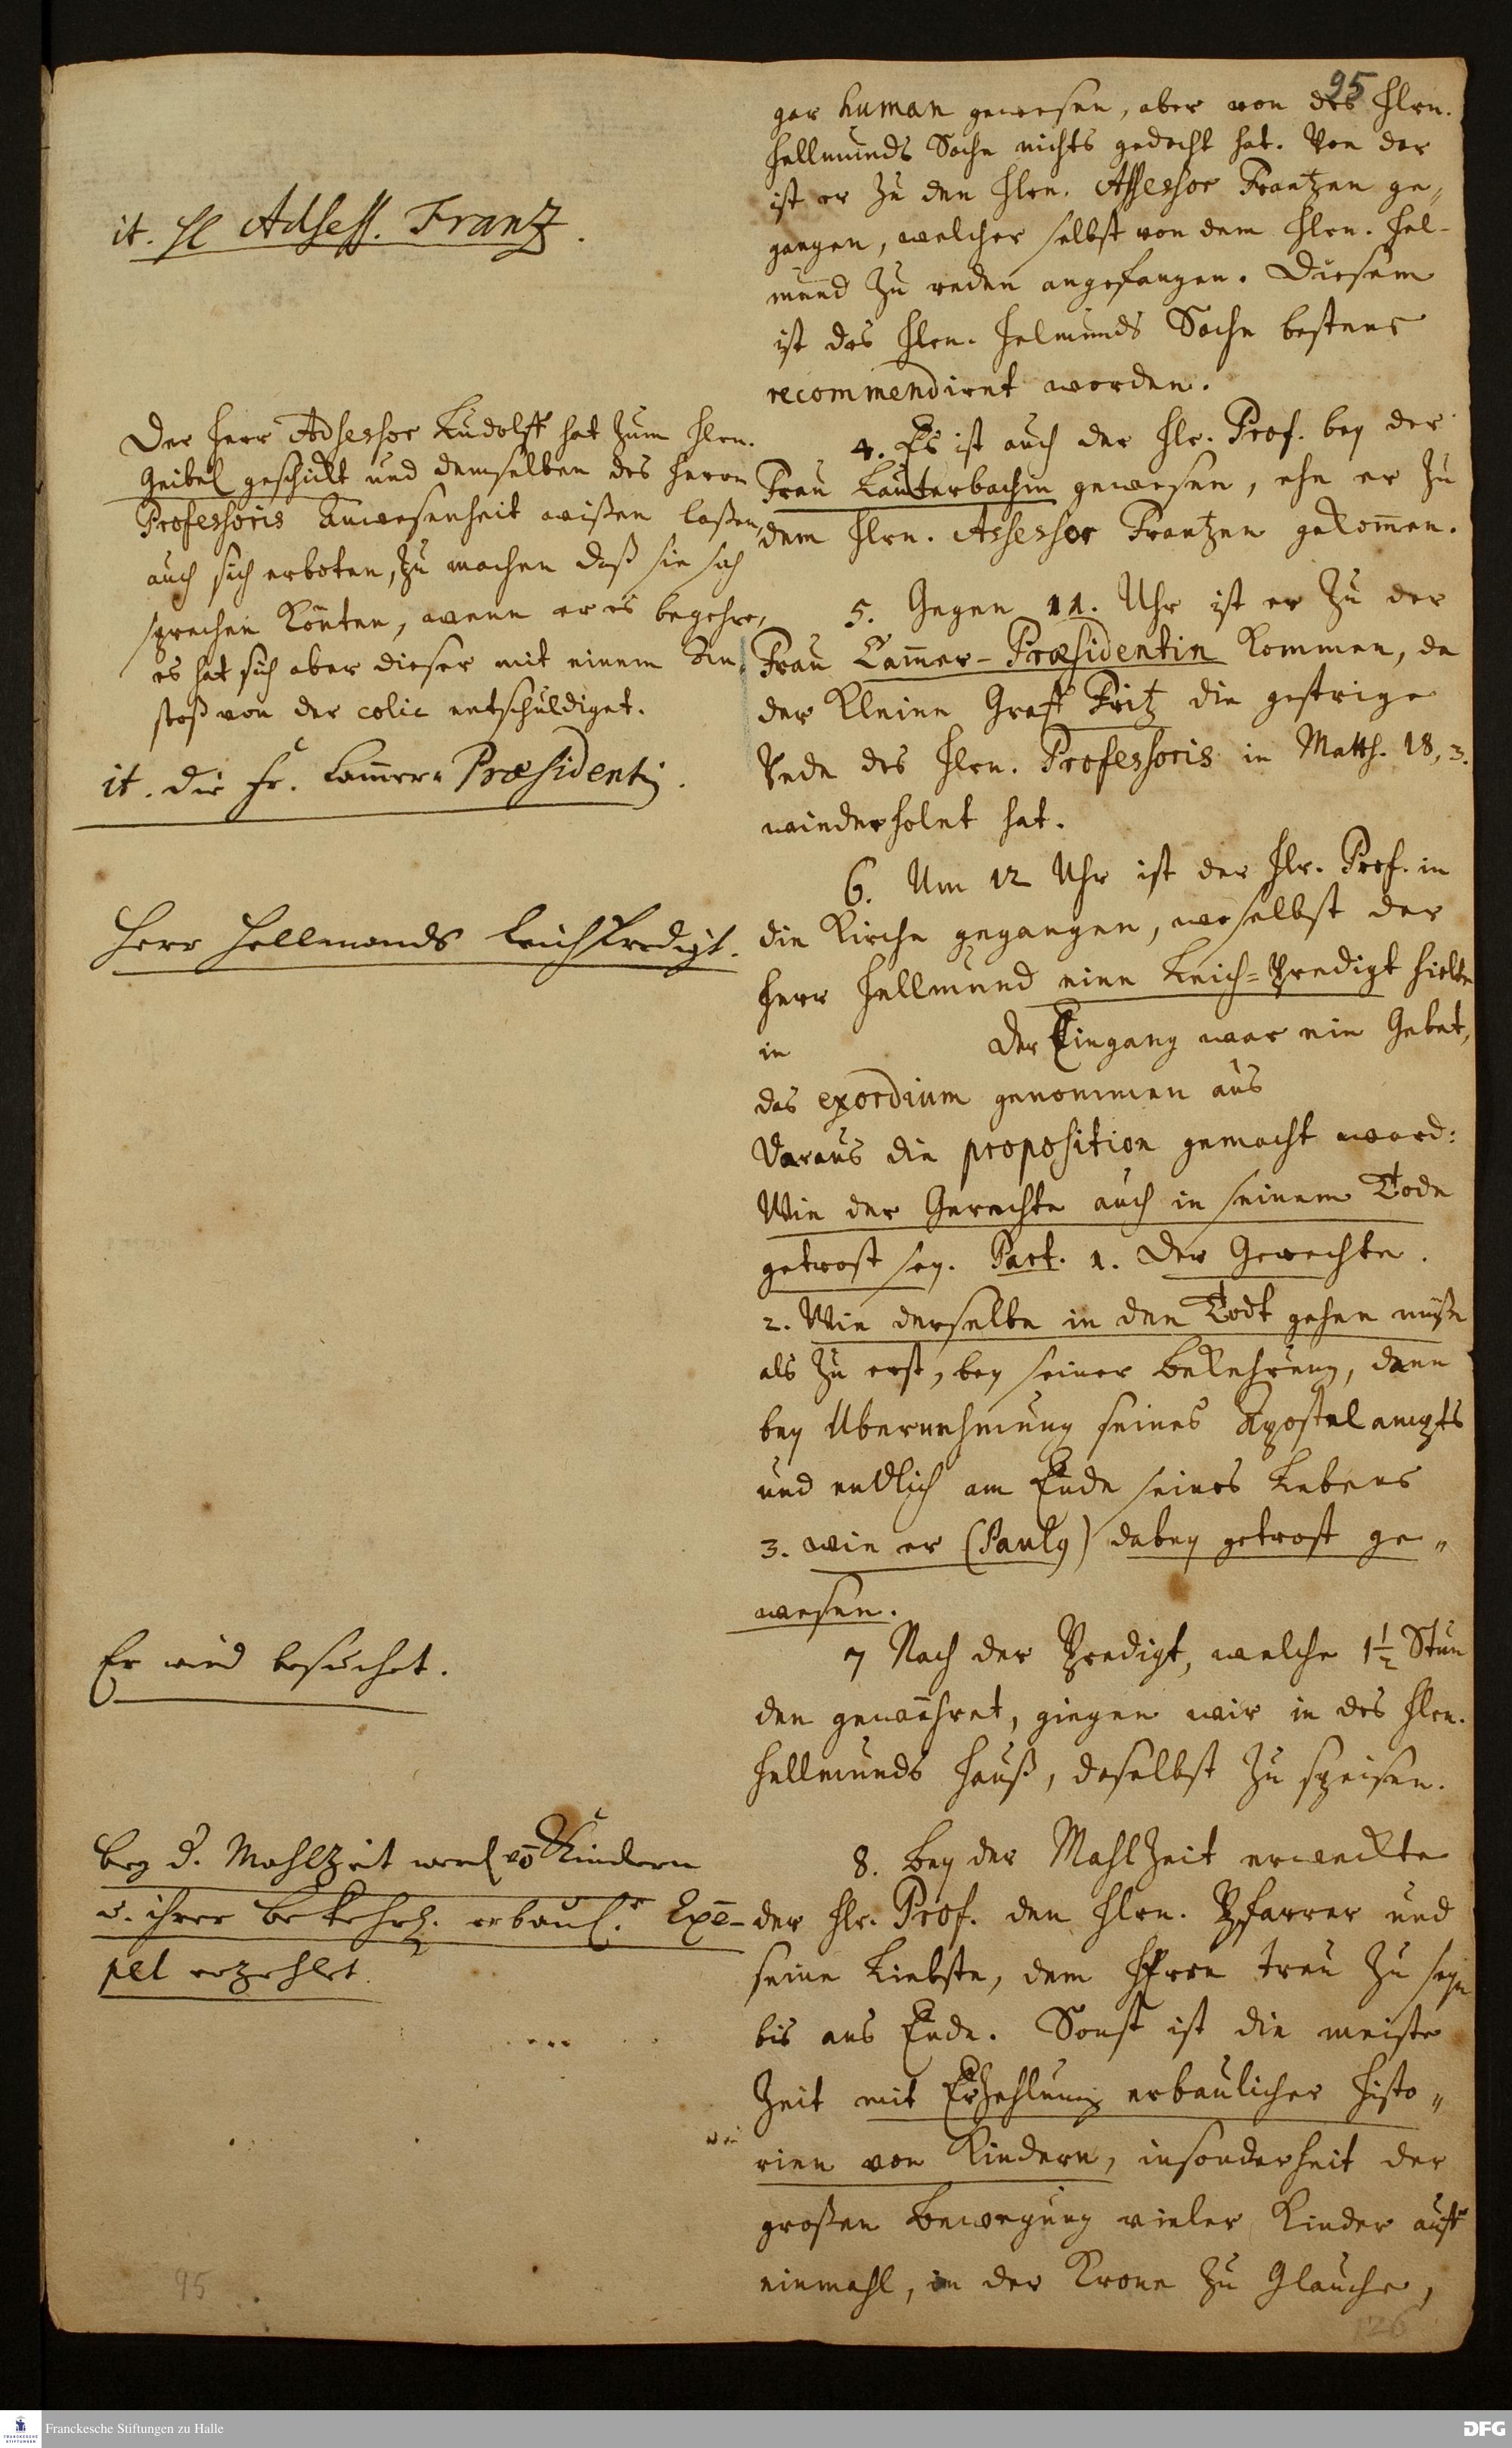 95
gar human gewesen, aber von des Hrn.
Hellmunds Sache nichts gedacht hat. Von dar
ist er zu den Hrn. Assessor Frantzen ge-
gangen, welcher selbst von dem Hrn. Hel-
mund zu reden angefangen. Diesem
ist des Hrn. Helmunds Sache bestens
recommendiret worden.
4. Es ist auch der Hr. Prof. bey der
Frau Lauterbachin gewesen, ehe er zu
dem Hrn. Assessor Frantzen gekom̄en.
5. Gegen 11. Uhr ist er zu der
Frau Cam̄er-Præsidentin kommen, da
der kleine Graff Fritz die gestrige
Rede des Hrn. Professoris in Matth. 18, 3.
wiederholet hat.
6. Um 12 Uhr ist der Hr. Prof. in
die Kirche gegangen, woselbst der
Herr Hellmund eine Leich-Predigt hielte
in der Eingang war ein Gebet,
das exordium genommen aus
Daraus die proposition gemacht ward:
Wie der Gerechte auch in seinem Tode
getrost sey. Part. 1. Der Gerechte.
2. Wie derselbe in den Todt gehen müße
als zu erst, bey seiner Bekehrung, dann
bey Ubernehmung seines Apostelampts
und endlich am Ende seines Lebens
3. wie er (Paulg) dabey getrost ge-
wesen.
7 Nach der Predigt, welche 1½ Stun
den gewähret, giengen wir in des Hrn.
Hellmunds Hauß, daselbst zu speisen.
8. Bey der Mahlzeit erweckte
der Hr. Prof. den Hrn. Pfarrer und
seine Liebste, dem HErrn treu zu seyn
bis ans Ende. Sonst ist die meiste
Zeit mit Erzehlung erbaulicher Histo-
rien von Kindern, insonderheit der
großen Bewegung vieler Kinder auff
einmahl, in der Krone zu Glauche,
it. H Adsess. Franz.
Der Herr Adsessor Ludolff hat zum Hrn.
Geibel geschickt und demselben des Herrn
Professoris Anwesenheit wißen laßen,
auch sich erboten, zu machen daß sie sich
sprechen könten, wenn er es begehre,
es hat sich aber dieser mit einem An-
stoß von der colic entschuldiget.
it. die Fr. Cam̄er-Præsidenti.
Herr Hellmonds LeichPredigt.
Er wird besuchet.
bey d. Mahlzeit werd vō Kindern
u. ihrer Bekehrg. erbaul. Exē-
pel erzehlet.
95
126
Franckesche Stiftungen zu Halle
DFG